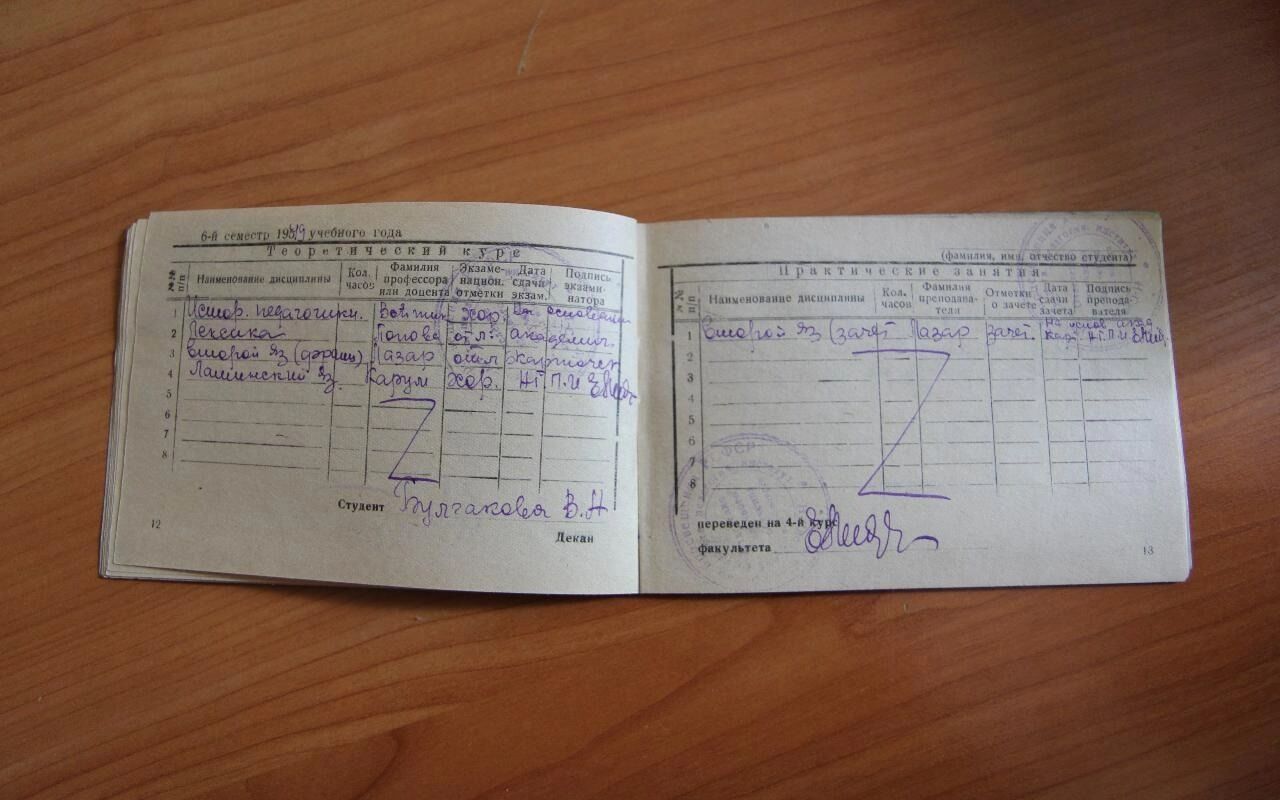 6-й семестр 195 /9 учебного года
Теоретический курс
№№ п/п Наименование дисциплины Кол. часов Фамилия профессора или доцента Экзаме-национ. отметки Дата сдачи экзам. Подпись экзами-натора
1 Истор. педагогики. хор. На основании
2 Лексика Попова отл. академич.
3 Второй яз (франц) Лазар отл карточек
4 Латинский яз. Карум хор. НГПИ
5
6
7
8
Студент Булгакова В. Н
Декан
12
(фамилия, имя, отчество студента)
Практические занятия
№№ п/п Наименование дисциплины Кол. часов Фамилия преподава-теля Отметки о зачете Дата сдачи зачета Подпись препода-вателя
1 Второй яз (зачет Лазар зачет. На основ акад карт НГПИ
2
3
4
5
6
7
8
переведен на 4-й курс
факультета
13